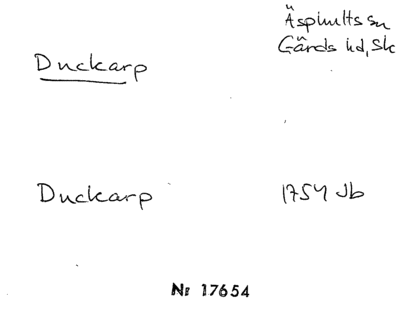 Äsphults sn
Gärds hd, Sk
Duckarp
Duckarp
1754 Jb
Nr 17654